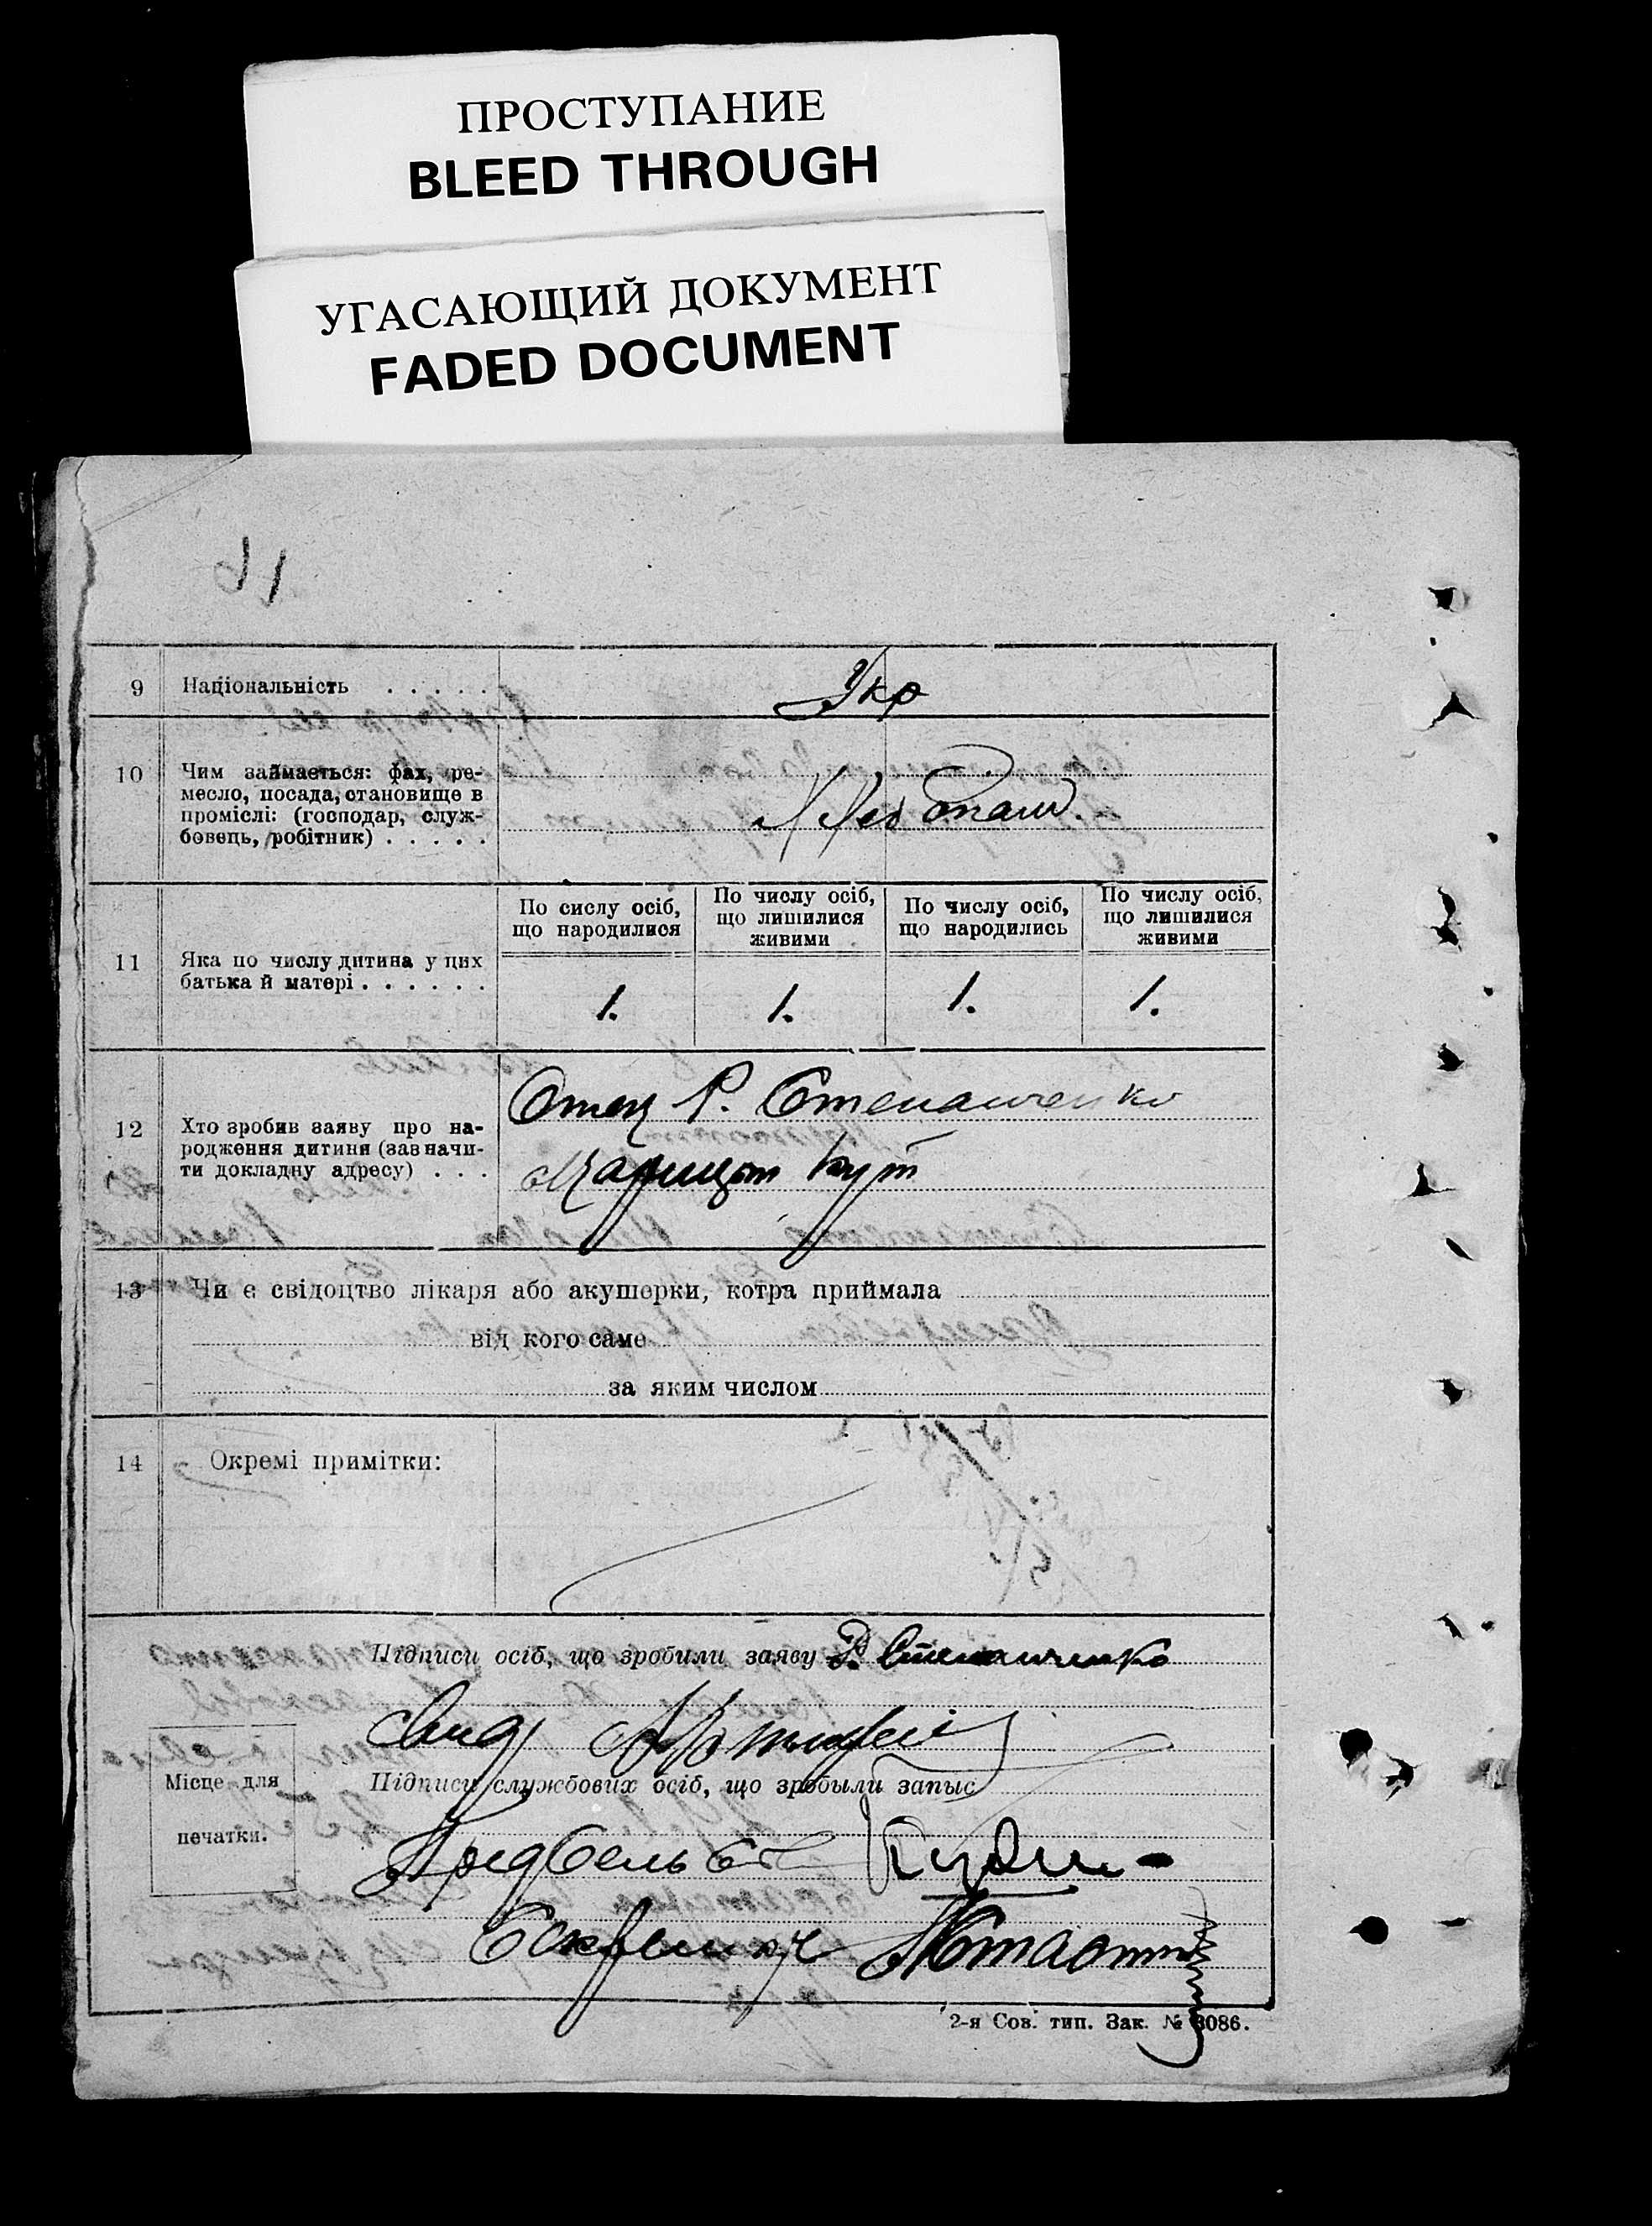 ПРОСТУПАНИЕ
BLEED THROUGH
УГАСАЮЩИЙ ДОКУМЕНТ
FADED DOCUMENT
9 Національність . . . . . Укр
10 Чим займається: фах, ре-
месло, посада, становище в
проміслі: (господар, служ-
бовець, робітник) . . . . .
11 Яка по числу дитина у цих
батька й матері . . . . . .
По сислу осіб,
що народилися
По числу осіб,
що лишилися
живими
По числу осіб,
що народились
По числу осіб,
що лишилися
живими
1. 1. 1. 1.
12 Хто зробив заяву про на-
родження дитини (зазначи-
ти докладну адресу) . . .
Отец Р. Степанченко
Кут
13 Чи є свідоцтво лікаря або акушерки, котра приймала
від кого саме
за яким числом
14 Окремі примітки:
Підписи осіб, що зробили заяву Р. Степанченко
Місце для
печатки.
Підписи службових осіб, що зробыли запыс
2-я Сов. тип. Зак. № 3086.